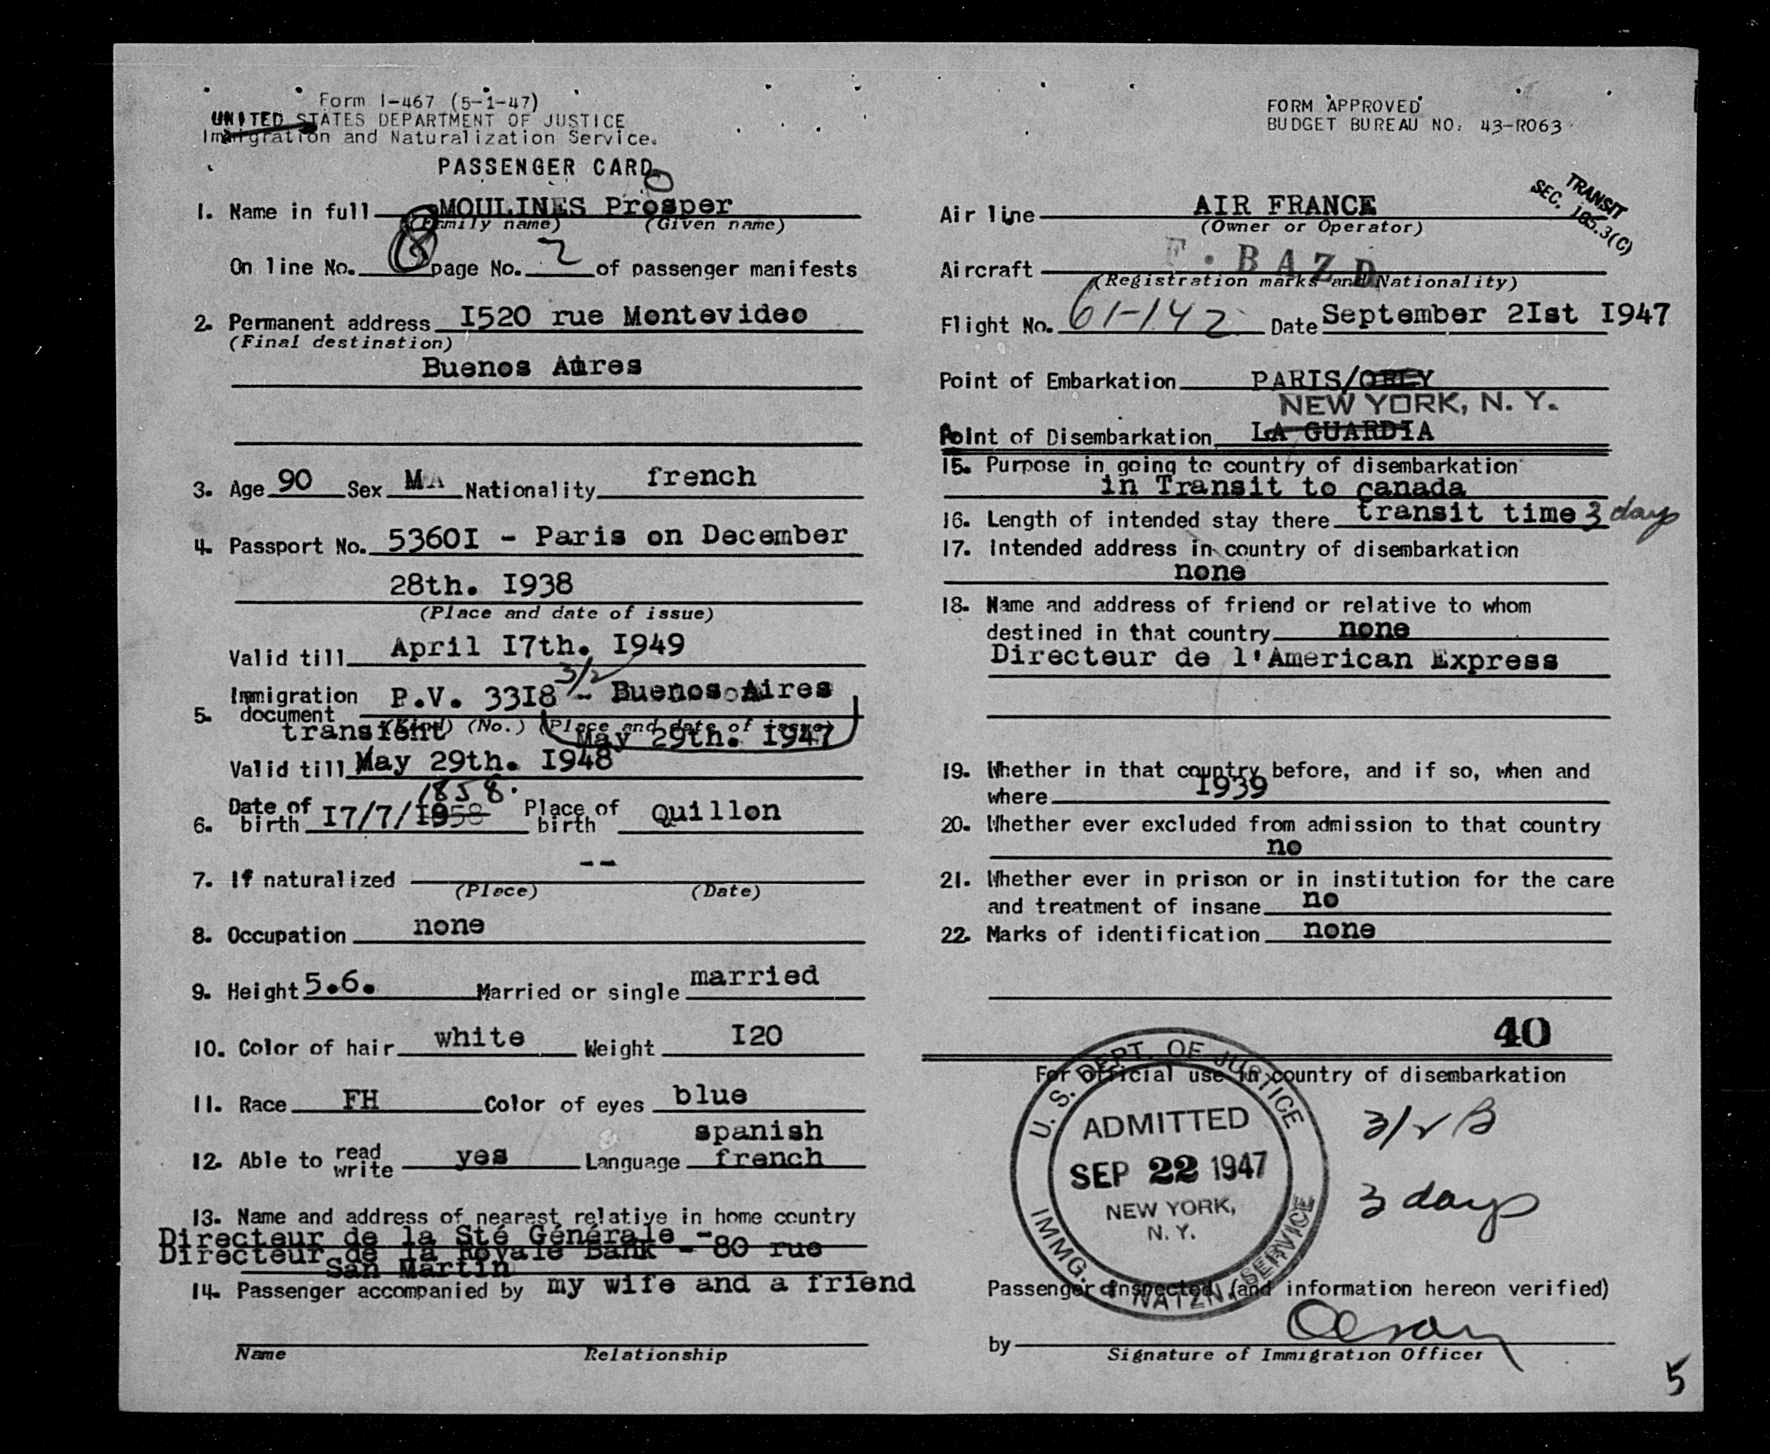 Form I-467 (5-1-47)
UNITED STATES DEPARTMENT OF JUSTICE
Immigration and Naturalization Service.
PASSENGER CARD
FORM APPROVED
BUDGET BUREAU NO. 43-RO63
TRANSIT
SEC. 185.3(C)
1. Name in full MOULINES Prosper
(Family name) (Given name)
On line No. 8 page No. 2 of passenger manifests
2. Permanent address I520 rue Montevideo
(Final destination)
Buenos Aires
3. Age 90 Sex MA Nationality french
4. Passport No. 5360I - Paris on December
28th. I938
(Place and date of issue)
Valid till April I7th. I949
3/2
5. Immigration document P.V. 33I8 - Buenos Aires
(Kind) (No.) (Place and date of issue)
transient May 29th. I947
Valid till May 29th. I948
1858.
6. Date of birth I7/7/I958 Place of birth Quillon
7. If naturalized --
(Place) (Date)
8. Occupation none
9. Height 5.6. Married or single married
10. Color of hair white Weight I20
11. Race FH Color of eyes blue
spanish
12. Able to read write yes Language french
13. Name and address of nearest relative in home country
Directeur de la Sté Générale -
Directeur de la Royale Bank - 80 rue
San Martin
14. Passenger accompanied by my wife and a friend
Name Relationship
Air line AIR FRANCE
(Owner or Operator)
Aircraft F. BAZD
(Registration marks and Nationality)
Flight No. 61-142 Date September 2Ist I947
Point of Embarkation PARIS/ORLY
NEW YORK, N. Y.
Point of Disembarkation LA GUARDIA
15. Purpose in going to country of disembarkation
in Transit to canada
16. Length of intended stay there transit time 3 days
17. Intended address in country of disembarkation
none
18. Name and address of friend or relative to whom
destined in that country none
Directeur de l'American Express
19. Whether in that country before, and if so, when and
where I939
20. Whether ever excluded from admission to that country
no
21. Whether ever in prison or in institution for the care
and treatment of insane no
22. Marks of identification none
40
For official use in country of disembarkation
U. S. DEPT. OF JUSTICE
ADMITTED
SEP 22 1947
NEW YORK,
N. Y.
IMMG. & NATZN. SERVICE
3/2 B
3 days
Passenger inspected (and information hereon verified)
by Olson
Signature of Immigration Officer
5